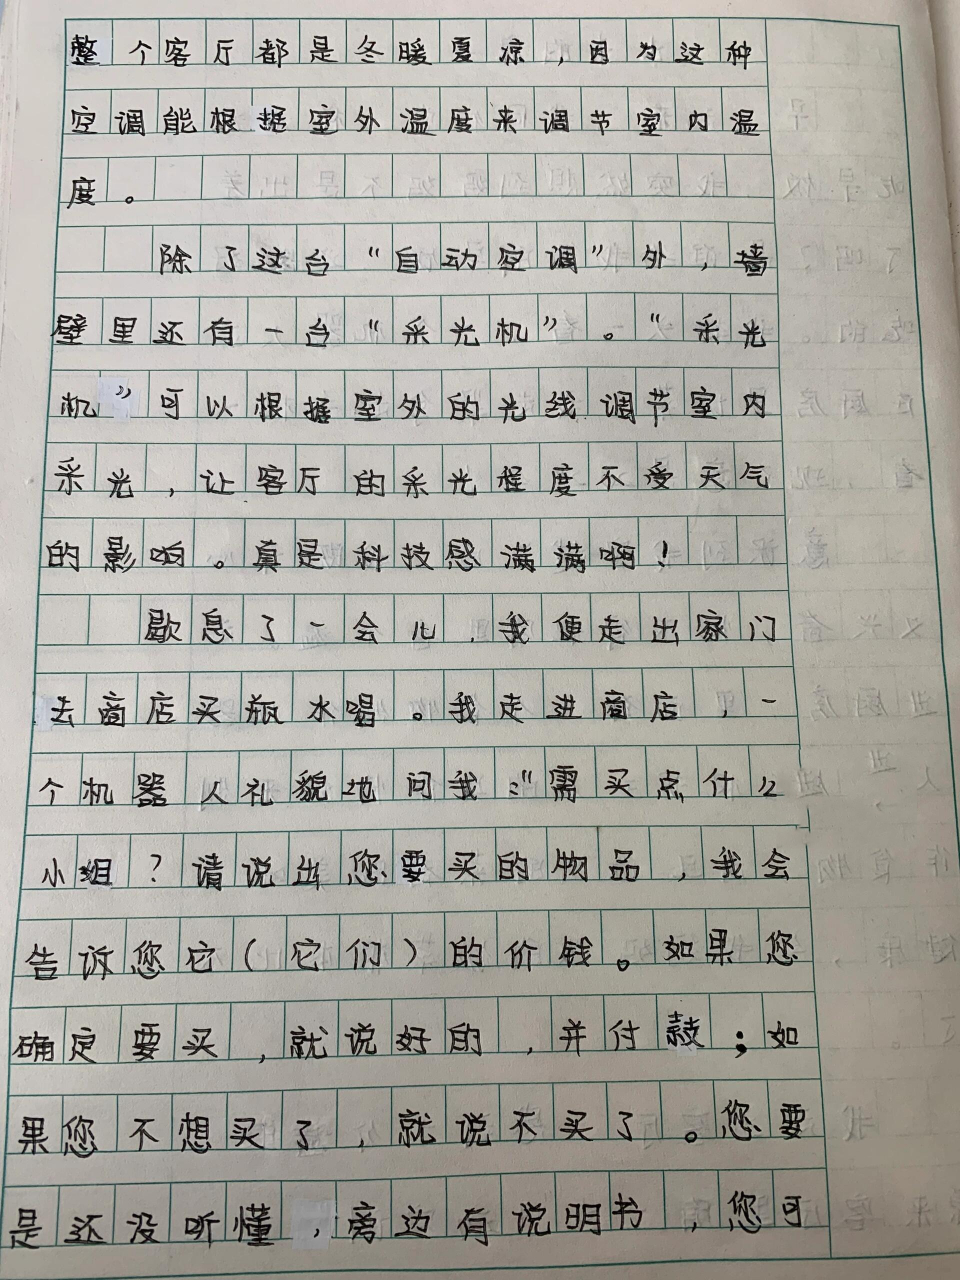 整个客厅都是冬暖夏凉，因为这种
空调能根据室外温度来调节室内温
度。
除了这台“自动空调”外，墙
壁里还有一台“采光机”。“采光
机”可以根据室外的光线调节室内
采光，让客厅的采光程度不受天气
的影响。真是科技感满满啊！
歇息了一会儿，我便走出家门
去商店买瓶水喝。我走进商店，一
个机器人礼貌地问我：“需买点什么
小姐？请说出您要买的物品，我会
告诉您它（它们）的价钱。如果您
确定要买，就说好的，并付款；如
果您不想买了，就说不买了。您要
是还没听懂，旁边有说明书，您可